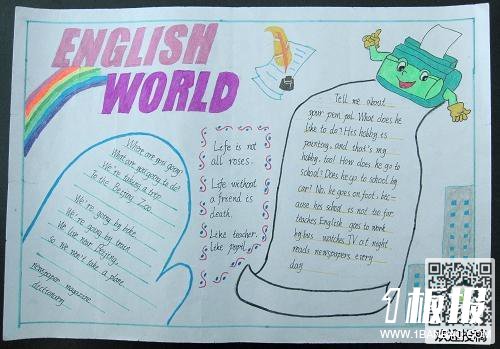 ENGLISH
WORLD
Where are you going?
What are you going to do?
We're taking a trip
To the Beijing Zoo
We're going by bike.
We're going by train
We live near Beijing,
So we won't take a plane
newspaper magazine
dictionary
Life is not
all roses.
Life without
a friend is
death.
Like teacher,
like pupil.
Tell me about
your pen pal. What does he
like to do? His hobby is
painting, and that's my
hobby, too! How does he go to
school? Does he go to school by
car? No, he goes on foot, bec-
ause his school is not too far.
teaches English goes to work
by bus watches TV at night
reads newspapers every
day
1板报
WWW.1BANBAO.COM
欢迎投稿